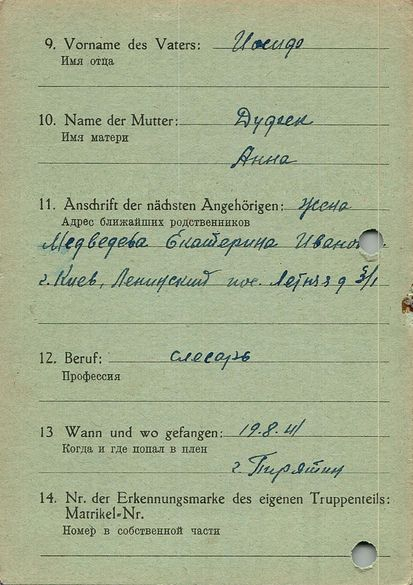 9. Vorname des Vaters: Иосиф
Имя отца
10. Name der Mutter: Дудзек
Имя матери
Анна
11. Anschrift der nächsten Angehörigen: жена
Адрес ближайших родственников
Медведева Екатерина Иванов
г. Киев, Ленинский пос. д 3/1
12. Beruf: слесарь
Профессия
13 Wann und wo gefangen: 19.8.41
Когда и где попал в плен
г. Пирятин
14. Nr. der Erkennungsmarke des eigenen Truppenteils:
Matrikel-Nr.
Номер в собственной части